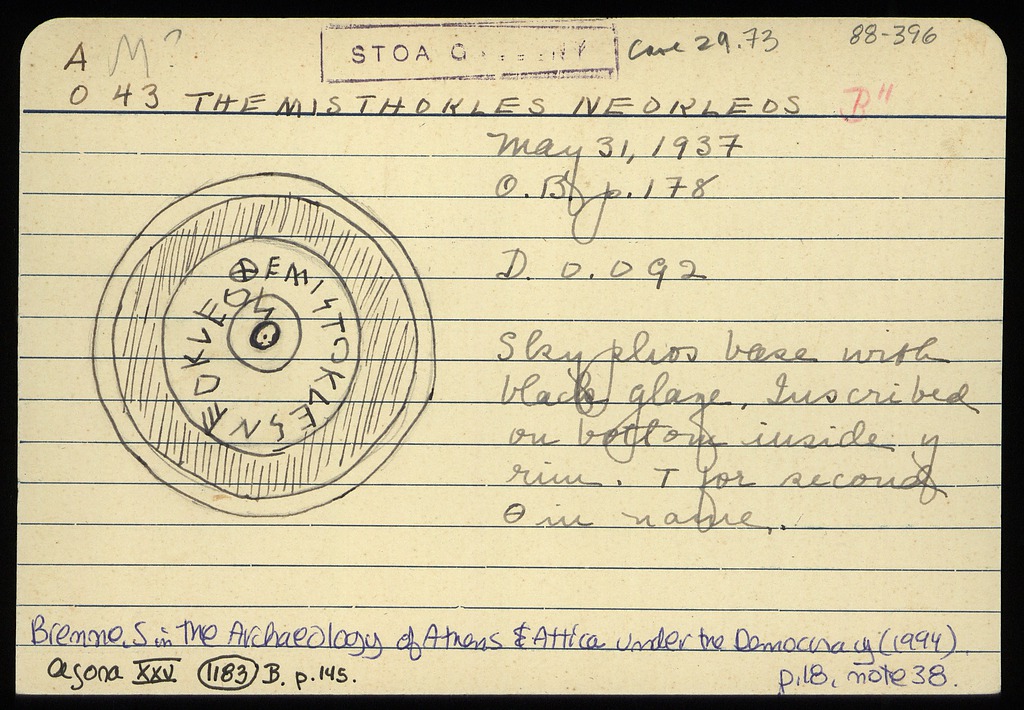 A M? STOA Case 29.73 88-396
O 43 THEMISTHOKLES NEOKLEOS B"
May 31, 1937
O.B. p. 178
D. 0.092
⊕EMISTOKLES NEOKLEOS
Skyphos base with
black glaze. Inscribed
on bottom inside of
rim. T for second
Θ in name.
Brenne, S in The Archaeology of Athens & Attica under the Democracy (1994)
p.18, note 38.
Agora XXV 1183 B. p.145.